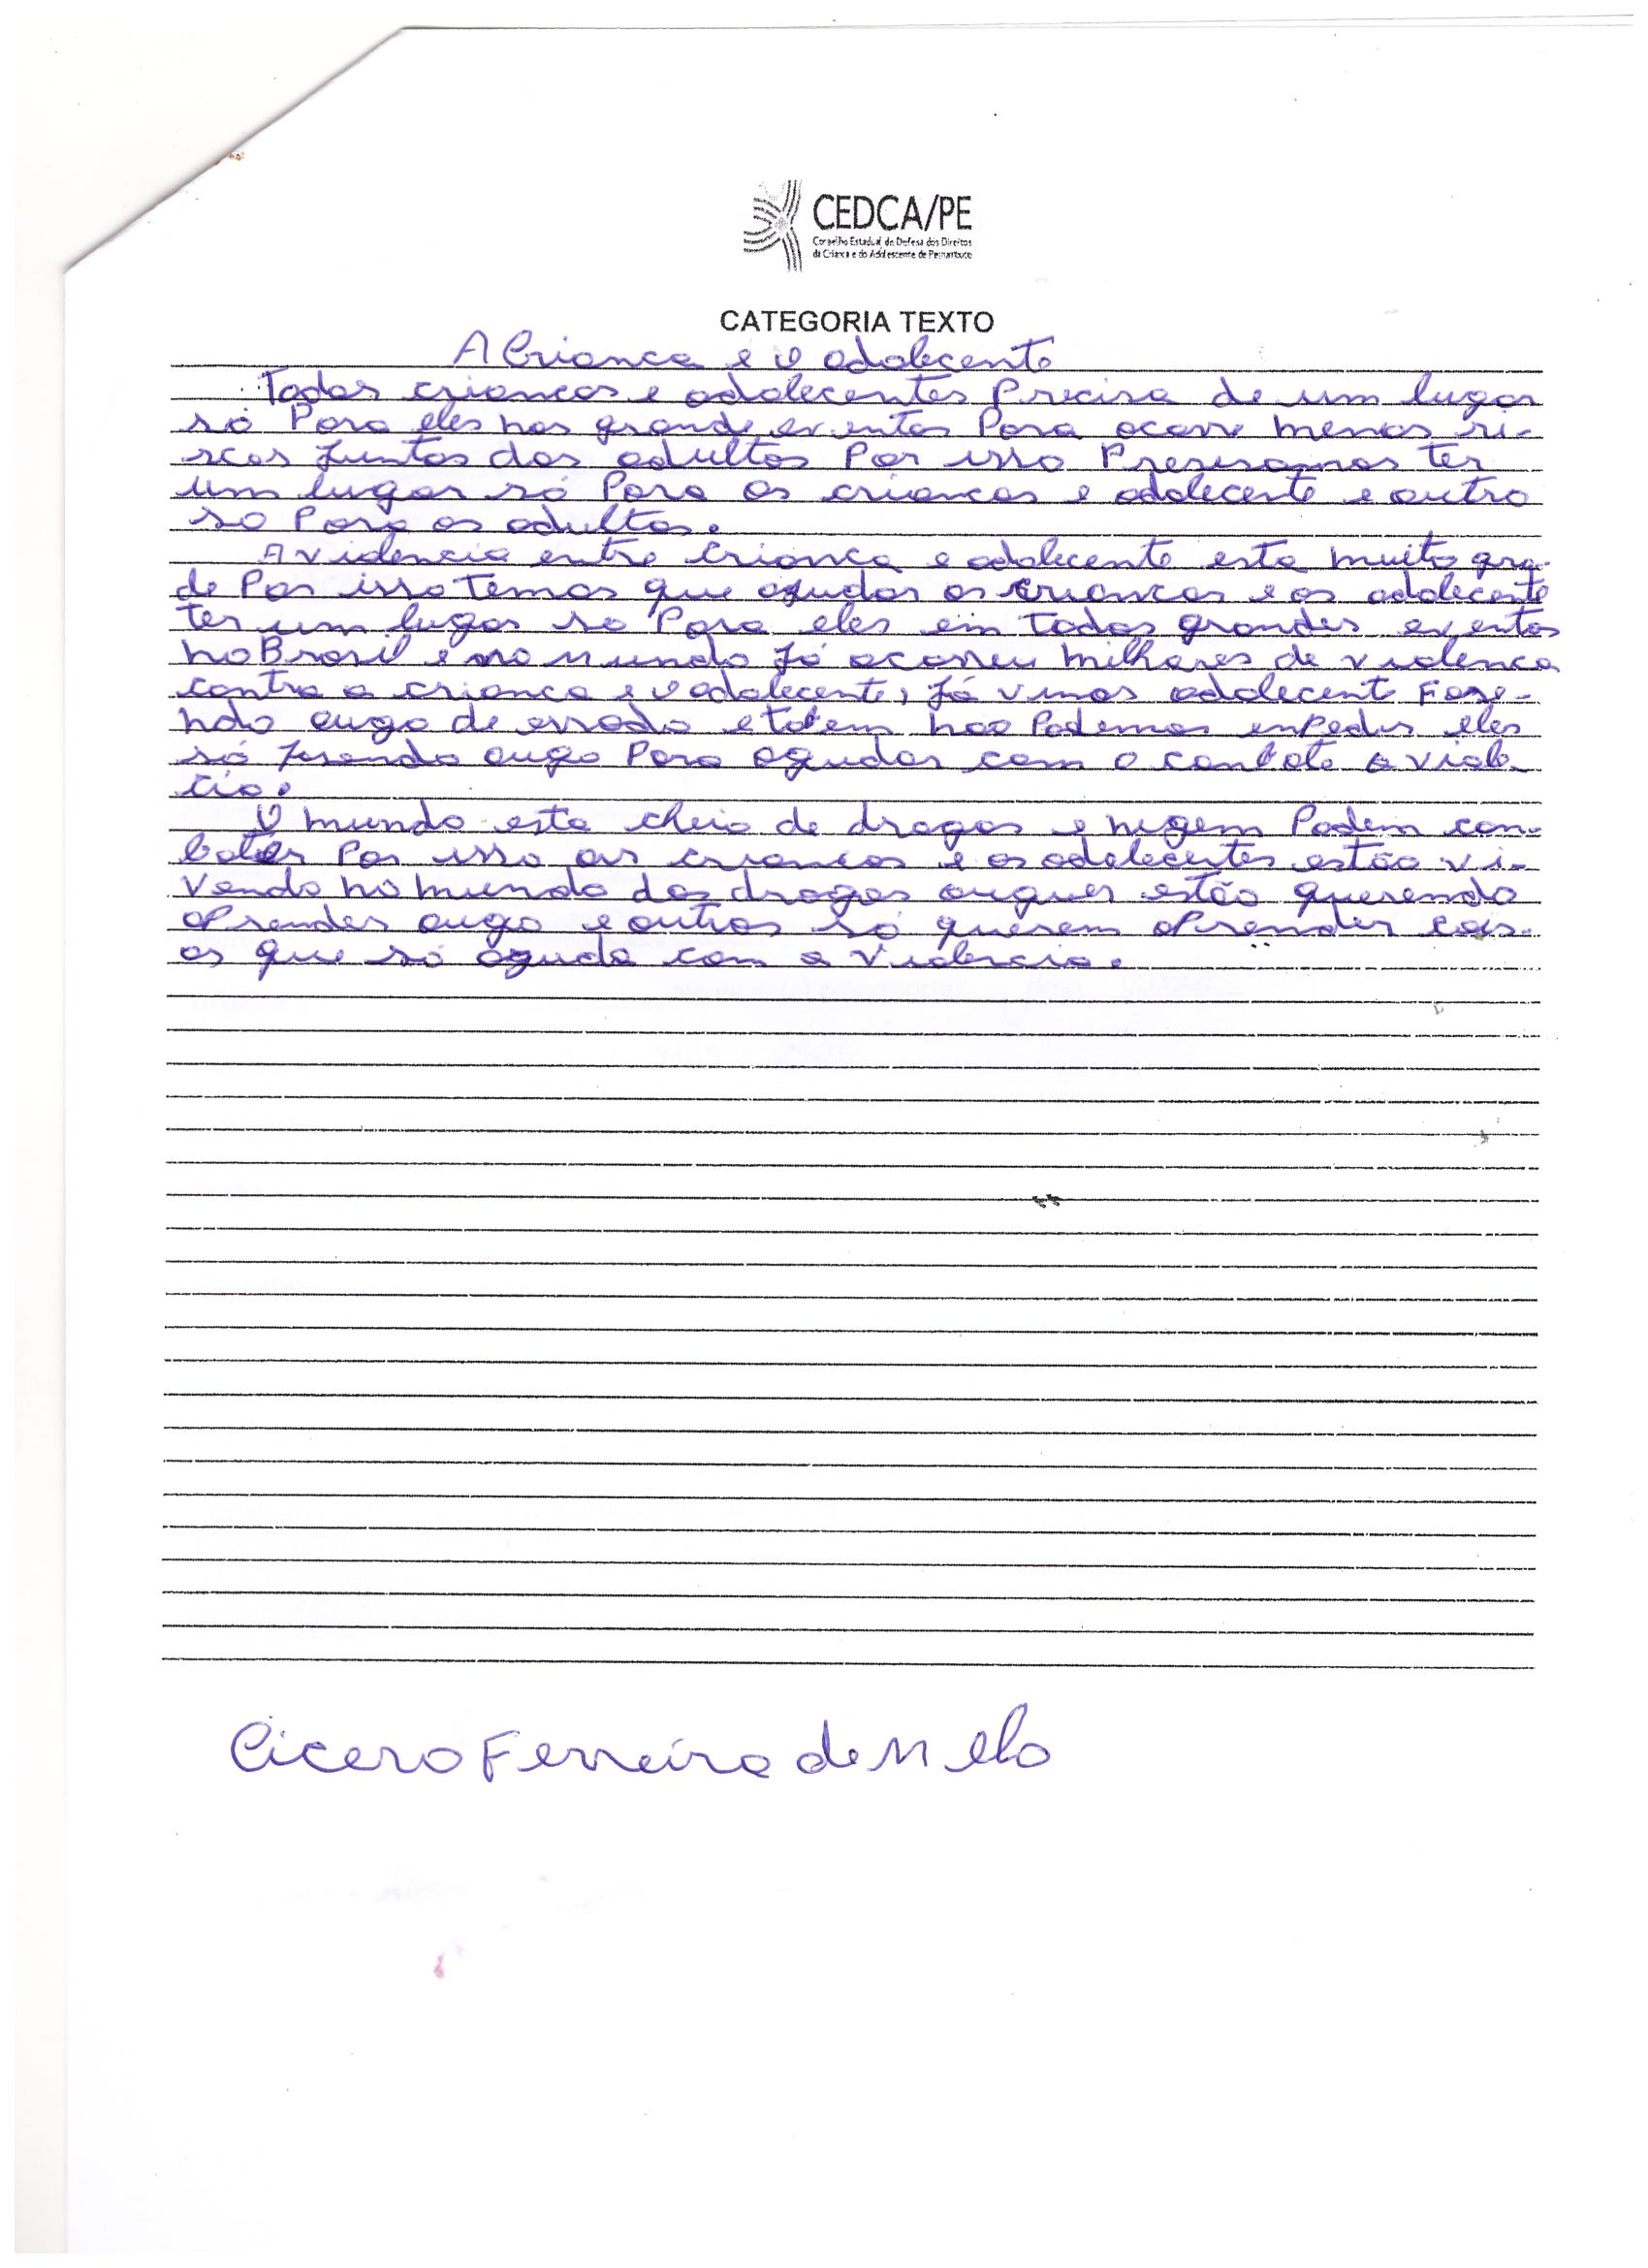 CEDCA/PE
Conselho Estadual de Defesa dos Direitos
da Criança e do Adolescente de Pernambuco
CATEGORIA TEXTO
A Crianca e o adolecente
Todas criancas e adolecentes Precisa de um lugar
só Para eles nos grande eventos Para ocorre menos ri-
scos Juntos dos adultos Por isso Preseramos ter
um lugar só Para as criancas e adolecente e outro
so Para os adultos.
A videncia entre crianca e adolecente esta muito gra-
de Por isso Temos que agudar as criancas e os adolecente
ter um lugar so Para eles em todas grandes eventos
no Brasil e no mundo Já ocorreu milhares de violenca
contra a crianca e o adolecente, Já vimos adolecente Faze-
ndo augo de errado e tobem nao Podemos enpedir eles
só fasendo augo Para agudar com o conbate a viole-
cia.
O mundo esta cheio de drogas e negem Podem con-
bater Por isso as criancas e os adelecentes estão vi-
vendo no mundo das drogas auguns estão querendo
aPrender augo e outros só querem aPrender cois-
as que só aguda com a violencia.
Cicero Ferreira de Melo